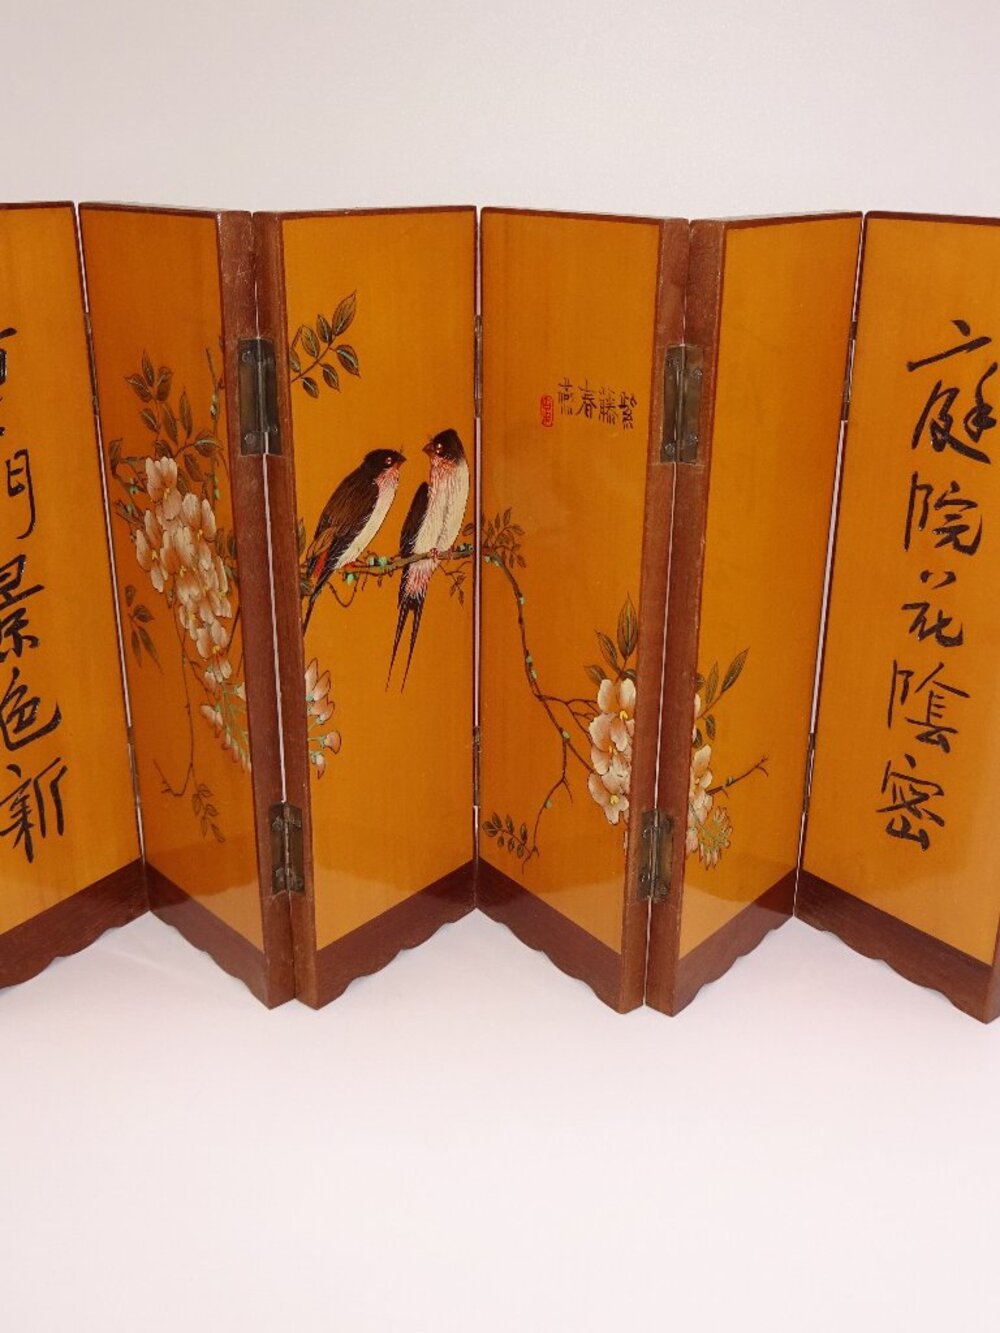 庭院花陰密
紫藤春燕
門景色新